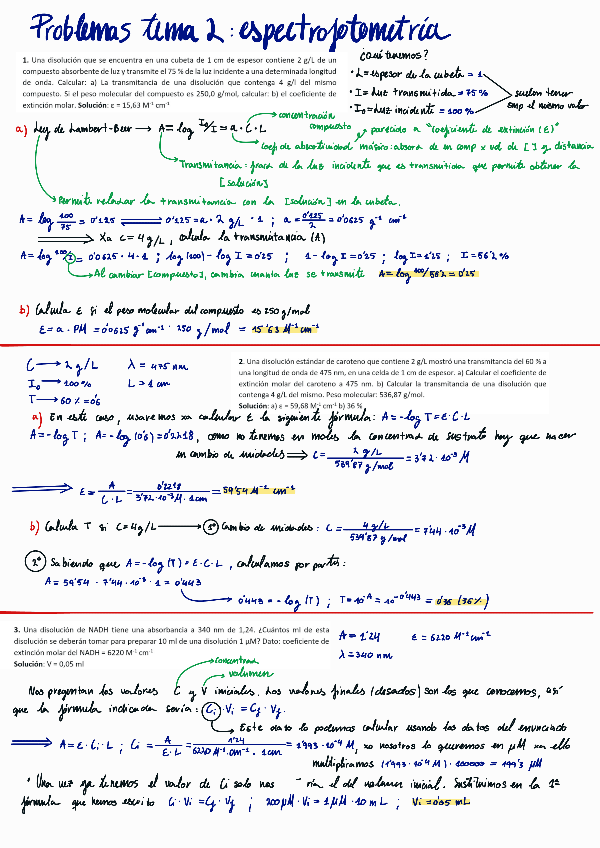 Problemas tema 2: espectrofotometría
1. Una disolución que se encuentra en una cubeta de 1 cm de espesor contiene 2 g/L de un
compuesto absorbente de luz y transmite el 75 % de la luz incidente a una determinada longitud
de onda. Calcular: a) La transmitancia de una disolución que contenga 4 g/l del mismo
compuesto. Si el peso molecular del compuesto es 250,0 g/mol, calcular: b) el coeficiente de
extinción molar. Solución: ε = 15,63 M⁻¹ cm⁻¹
¿Qué tenemos?
• L = espesor de la cubeta = 1
• I = Luz transmitida = 75 %
• I₀ = Luz incidente = 100 %
suelen tener
siempre el mismo valor
a) Ley de Lambert-Beer → A = log I₀/I = a · C · L
concentración
compuesto
parecido a "coeficiente de extinción (ε)"
coef de absortividad másico: absorb de un comp x ud de [ ] y distancia
Transmitancia: fracc de la luz incidente que es transmitida que permite obtener la
[solución]
Permite relacionar la transmitancia con la [solución] en la cubeta.
A = log 100/75 = 0'125 ⟹ 0'125 = a · 2 g/L · 1 ; a = 0'125/2 = 0'0625 g⁻¹ cm⁻¹
⟹ Xa C = 4 g/L, calcula la transmitancia (A)
A = log 100/I = 0'0625 · 4 · 1 ; log(100) - log I = 0'25 ; 1 - log I = 0'25 ; log I = 1'25 ; I = 56'2 %
Al cambiar [compuesto], cambia cuanta luz se transmite A = log 100/56'2 = 0'25
b) Calcula ε si el peso molecular del compuesto es 250 g/mol
ε = a · PM = 0'0625 g⁻¹ cm⁻¹ · 250 g/mol = 15'63 M⁻¹ cm⁻¹
C → 2 g/L λ = 475 nm
I₀ → 100 % L = 1 cm
T → 60 % = 0'6
2. Una disolución estándar de caroteno que contiene 2 g/L mostró una transmitancia del 60 % a
una longitud de onda de 475 nm, en una celda de 1 cm de espesor. a) Calcular el coeficiente de
extinción molar del caroteno a 475 nm. b) Calcular la transmitancia de una disolución que
contenga 4 g/l del mismo. Peso molecular: 536,87 g/mol.
Solución: a) ε = 59,68 M⁻¹ cm⁻¹ b) 36 %
a) En este caso, usaremos xa calcular ε la siguiente fórmula: A = -log T = ε · C · L
A = -log T ; A = -log (0'6) = 0'2218, como no tenemos en moles la concentrac de sustrato hay que hacer
un cambio de unidades ⟹ C = 2 g/L / 539'87 g/mol = 3'72 · 10⁻³ M
⟹ ε = A / C · L = 0'2218 / 3'72 · 10⁻³ M · 1cm = 59'54 M⁻¹ cm⁻¹
b) Calcula T si C = 4 g/L → 1º Cambio de unidades: C = 4 g/L / 539'87 g/mol = 7'44 · 10⁻³ M
2º Sabiendo que A = -log (T) = ε · C · L, calculamos por partes:
A = 59'54 · 7'44 · 10⁻³ · 1 = 0'443
0'443 = -log (T) ; T = 10⁻ᴬ = 10⁻⁰'⁴⁴³ = 0'36 (36 %)
3. Una disolución de NADH tiene una absorbancia a 340 nm de 1,24. ¿Cuántos ml de esta
disolución se deberán tomar para preparar 10 ml de una disolución 1 μM? Dato: coeficiente de
extinción molar del NADH = 6220 M⁻¹ cm⁻¹
Solución: V = 0,05 ml
A = 1'24 ε = 6220 M⁻¹ cm⁻¹
λ = 340 nm
concentrac
volumen
Nos preguntan los valores C y V iniciales. Los valores finales (deseados) son los que conocemos, así
que la fórmula indicada sería: Ci · Vi = Cf · Vf.
Este dato lo podemos calcular usando los datos del enunciado
⟹ A = ε · Ci · L ; Ci = A / ε · L = 1'24 / 6220 M⁻¹ · cm⁻¹ · 1cm = 1'993 · 10⁻⁴ M, xo nosotros lo queremos en μM xa ello
multiplicamos (1'993 · 10⁻⁴ M) · 1000000 = 199'3 μM
• Una vez ya tenemos el valor de Ci solo nos ría el del volumen inicial. Sustituimos en la 1ª
fórmula que hemos escrito Ci · Vi = Cf · Vf ; 200 μM · Vi = 1 μM · 10 mL ; Vi = 0'05 mL